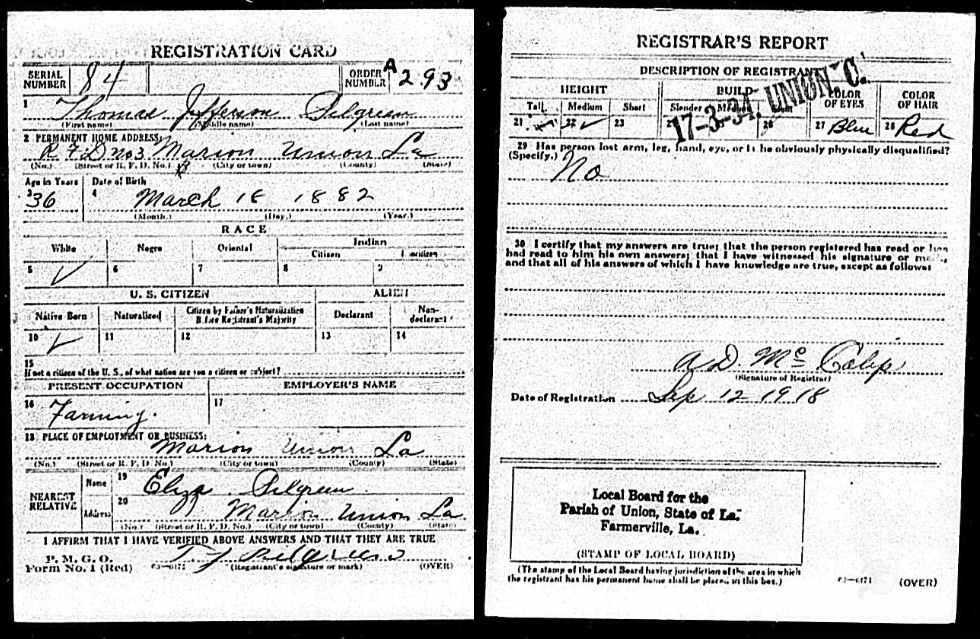 REGISTRATION CARD
SERIAL NUMBER 84 ORDER NUMBER A293
1 Thomas Jefferson Pilgreen
(First name) (Middle name) (Last name)
2 PERMANENT HOME ADDRESS:
R F D no 3 Marion Union La
(No.) (Street or R. F. D. No.) (City or town) (County) (State)
Age in Years Date of Birth
3 36 4 March 18 1882
(Month.) (Day.) (Year.)
RACE
White Negro Oriental Indian
Citizen
5 ✓ 6 7 8 9
U. S. CITIZEN ALIEN
Native Born Naturalized Citizen by Father's Naturalization Before Registrant's Majority Declarant Non-declarant
10 ✓ 11 12 13 14
15
If not a citizen of the U. S., of what nation are you a citizen or subject?
PRESENT OCCUPATION EMPLOYER'S NAME
16 Farming. 17
18 PLACE OF EMPLOYMENT OR BUSINESS:
Marion Union La
(No.) (Street or R. F. D. No.) (City or town) (County) (State)
NEAREST RELATIVE Name 19 Eliza Pilgreen
Address 20 Marion Union La
(No.) (Street or R. F. D. No.) (City or town) (County) (State)
I AFFIRM THAT I HAVE VERIFIED ABOVE ANSWERS AND THAT THEY ARE TRUE
P. M. G. O.
Form No. 1 (Red) 03-6171 T J Pilgreen
(Registrant's signature or mark) (OVER)
REGISTRAR'S REPORT
DESCRIPTION OF REGISTRANT
HEIGHT BUILD COLOR OF EYES COLOR OF HAIR
Tall Medium Short Slender Medium
21 22 ✓ 23 26 27 Blue 28 Red
17-3-34. UNION C. La.
29 Has person lost arm, leg, hand, eye, or is he obviously physically disqualified?
(Specify.) No
30 I certify that my answers are true; that the person registered has read or has
had read to him his own answers; that I have witnessed his signature or mark,
and that all of his answers of which I have knowledge are true, except as follows:
A D Mc
(Signature of Registrar)
Date of Registration Sep 12 1918
Local Board for the
Parish of Union, State of La.
Farmerville, La.
(STAMP OF LOCAL BOARD)
(The stamp of the Local Board having jurisdiction of the area in which
the registrant has his permanent home shall be placed in this box.)
03-6171 (OVER)